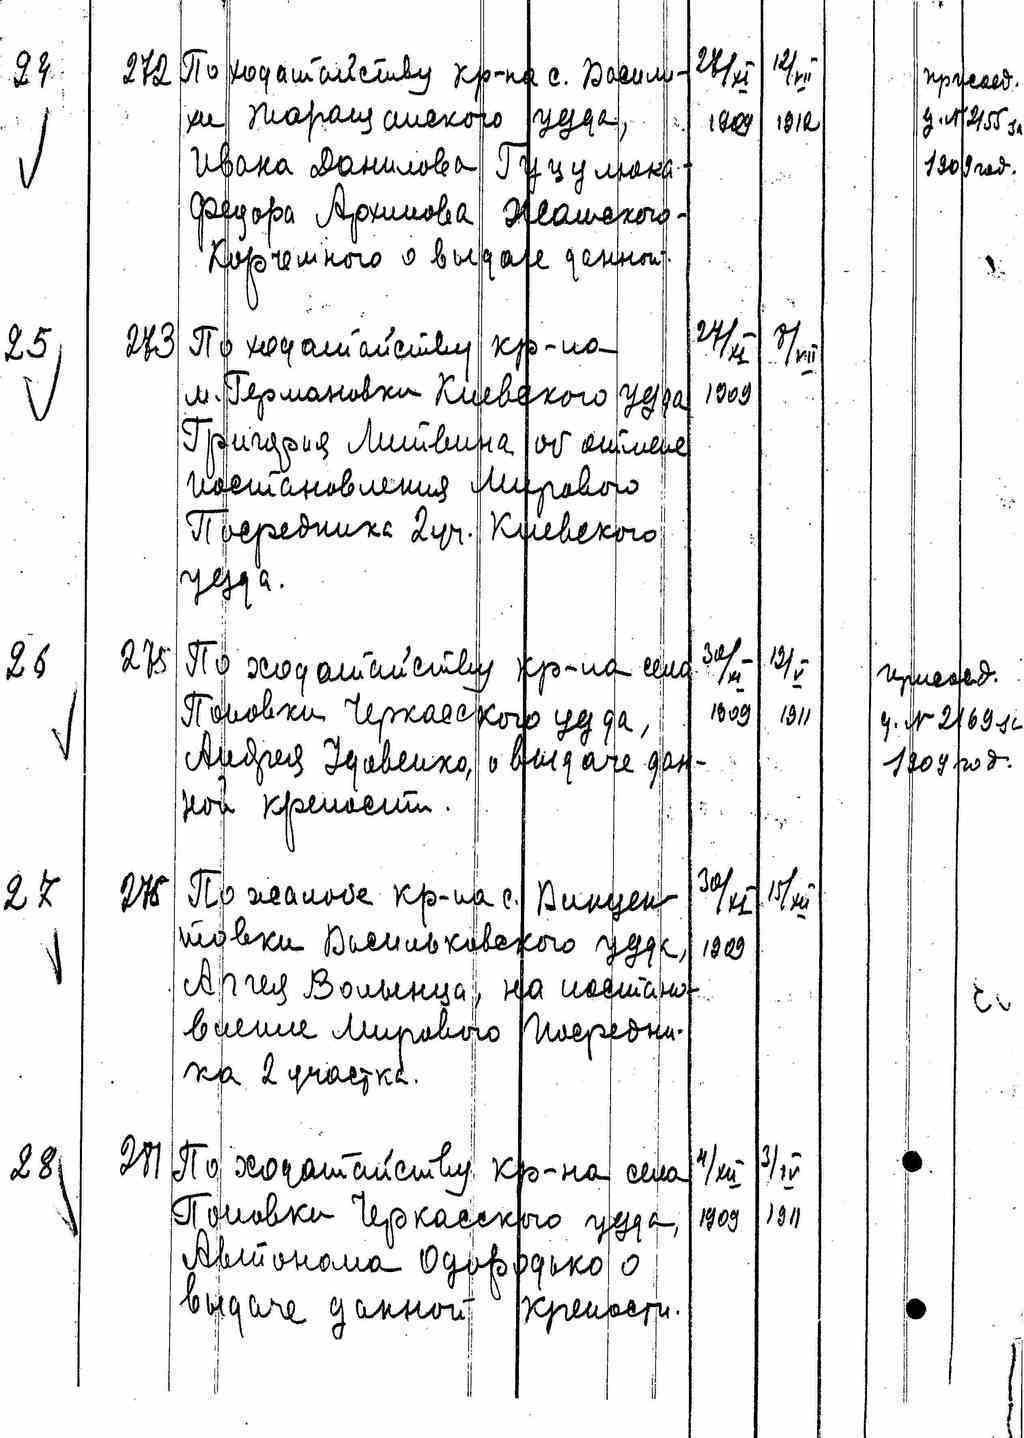 24 272 По ходатайству кр-на с. Васили- 27/XI 12/VII присоед.
хи Таращанского уезда, 1909 1912 д. № 2155 за
Ивана Данилова Гуцулюка- 1909 год.
Федора Архипова
Корчемного о выдаче данной.
25 273 По ходатайству кр-на 27/XI 7/VII
м. Германовки Киевского уезда 1909
Григория Литвина об отмене
постановления Мирового
Посредника 2 уч. Киевского
уезда.
26 275 По ходатайству кр-на села 30/XI 19/V присоед.
Поповки Черкасского уезда, 1909 1911 д. № 2169 за
Андрея Удовенко, о выдаче дан- 1909 год.
ной крепости.
27 276 По жалобе кр-на с. Винцен- 30/XI 15/XII
товки Васильковского уезда, 1909
Аггея Волынца, на постано-
вление Мирового Посредни-
ка 2 участка.
28 По ходатайству кр-на села 4/XII 3/IV
Поповки Черкасского уезда, 1909 1911
Автонома Одородько о
выдаче данной крепости.